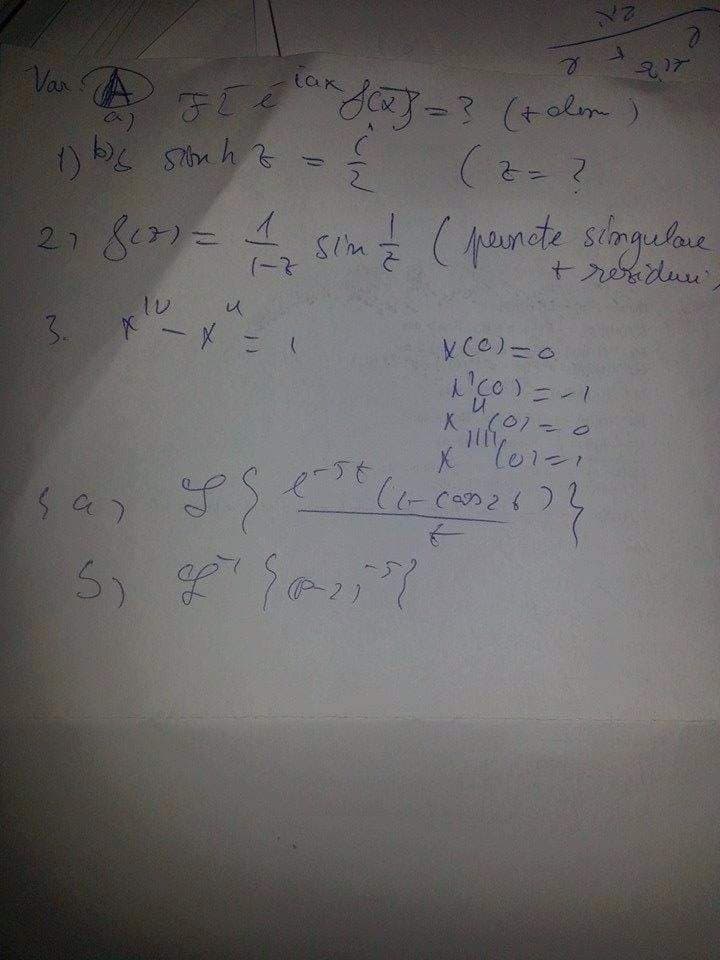 Var: A
a) F[e^{iax} f(x)] = ? (+ dem)
1) b) sinh z = i/2 ( z = ?
2) f(z) = 1/(1-z) sin 1/z ( puncte singulare
+ reziduu
3. x^{IV} - x^{II} = 1
x(0) = 0
x'(0) = -1
x''(0) = 0
x''''(0) = 1
a) L { e^{-5t} (1 - cos 2t) / t }
b) L^{-1} { (p-2)^{-5} }